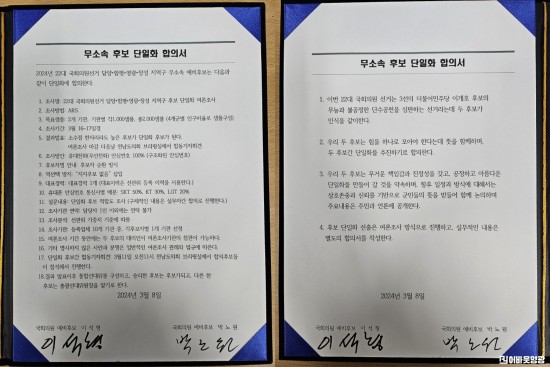 무소속 후보 단일화 합의서
2024년 22대 국회의원선거 담양·함평·영광·장성 지역구 무소속 예비후보는 다음과
같이 단일화에 합의한다.
1. 조사명: 22대 국회의원선거 담양·함평·영광·장성 지역구 후보 단일화 여론조사
2. 조사방법: ARS
3. 목표샘플: 2개 기관, 기관별 각1,000샘플, 총2,000샘플
4. 조사기간: 3월 16-17일경
5. 결과발표: 소수점 한자리라도 높은 후보가 단일화 후보가 된다.
여론조사 마감 다음날 전남도의회 브리핑실에서 합동기자회견
6. 조사방안: 휴대전화(무선전화) 안심번호 100%
7. 후보자별 안내: 후보자 순환 방식
8. 역선택 방지: "지지후보 없음" 삽입
9. 대표경력: 대표경력 2개
10. 휴대폰 안심번호 통신사별 배분: SKT 50%, KT 30%, LGT 20%
11. 설문내용: 단일화 후보 적합도 조사
12. 조사기관 연락: 담당자 1인 이외에는 연락 불가
13. 조사분석: 선관위 가중치 기준에 따름
14. 조사기관: 등록업체 10개 기관 중,
15. 여론조사 기간 동안에는 두 후보의 대리인이 여론조사기관의 참관이 가능하다.
16. 기타 명시하지 않은 사안과 분쟁은 일반적인 여론조사 관례와 법규에 따른다.
17. 단일화 후보간 합동기자회견: 3월11일 오전11시 전남도의회 브리핑실에서
이 참석해서 진행한다.
18. 결과 발표이후 통합선대위를 구성하고, 승리한 후보는 후보가되고, 다른 한
후보는 총괄선대위원장을 맡기로 한다.
2024년 3월 8일
국회의원 예비후보 이석형
국회의원 예비후보 박노원
이석형
박노원
무소속 후보 단일화 합의서
1. 이번 22대 국회의원 선거는 3선의 더불어민주당 이개호 후보의
무능과 불공정한 단수공천을 심판하는 선거라는데 두 후보가
인식을 같이한다.
2. 우리 두 후보는 힘을 하나로 모아야 한다는데 뜻을 함께하며,
두 후보간 단일화를 추진하기로 합의한다.
3. 우리 두 후보는 무거운 책임감과 진정성을 갖고, 공정하고 아름다운
단일화를 만들어 갈 것을 약속하며, 향후 일정과 방식에 대해서는
상호존중과 신뢰를 기반으로 군민들의 뜻을 받들어 함께 논의하며
주요내용은 주민과 언론에 공개한다.
4. 후보 단일화 선출은 여론조사 방식으로 진행하고, 실무적인 내용은
별도의 합의서를 작성한다.
2024년 3월 8일
국회의원 예비후보 이석형
국회의원 예비후보 박노원
이석형
박노원
어바웃영광